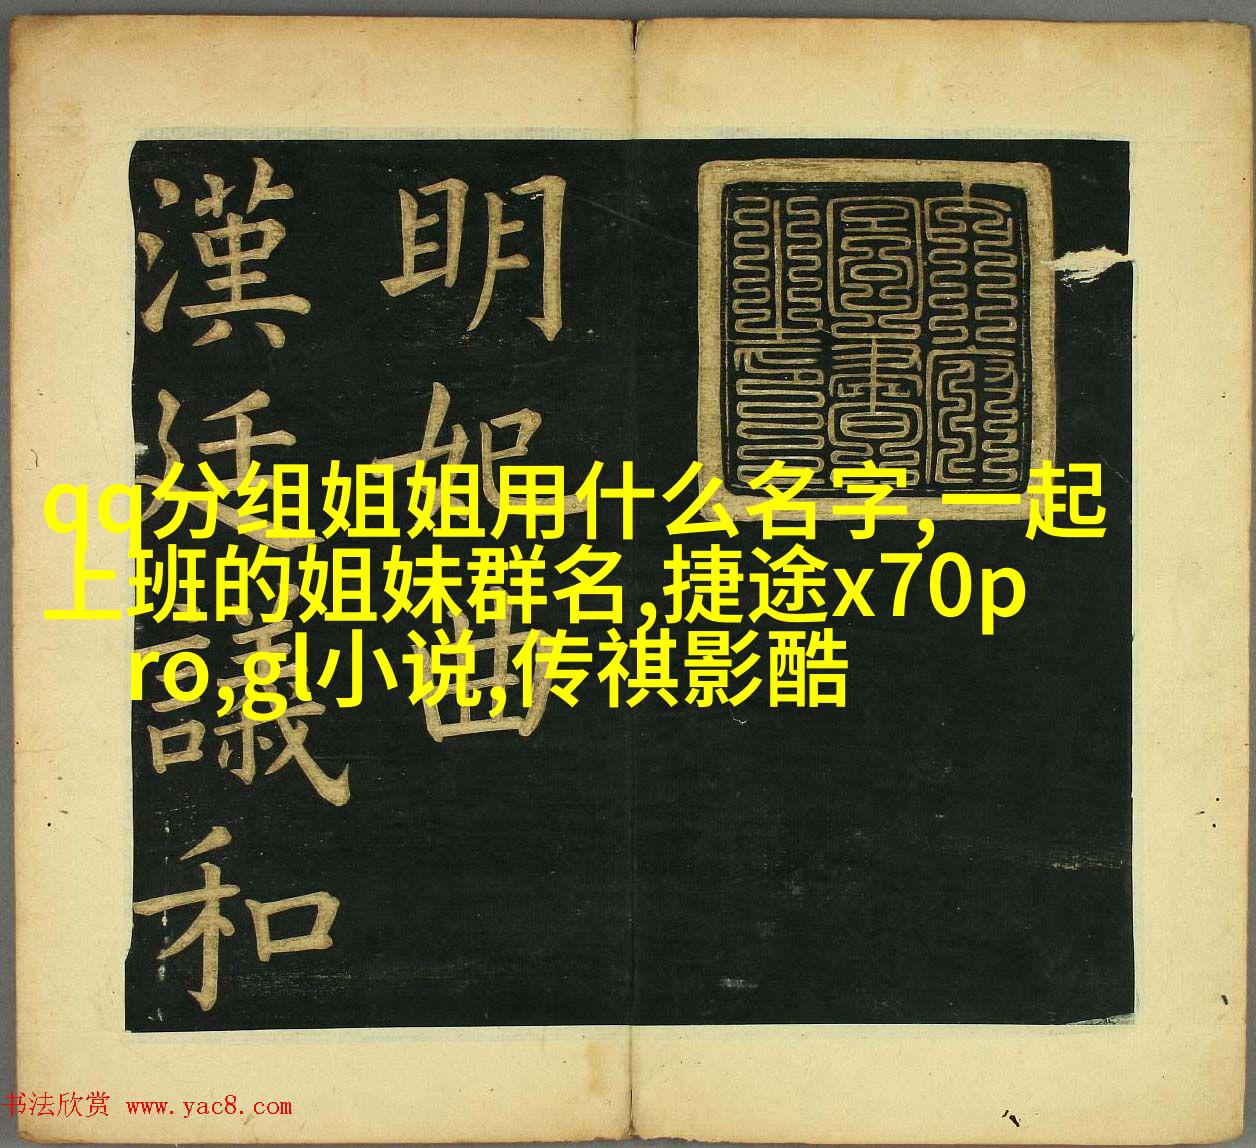 明妃曲
漢廷議和
qq分组姐姐用什么名字,一起
上班的姐妹群名,捷途x70p
ro,gl小说,传祺影酷
书法欣赏 www.yac8.com